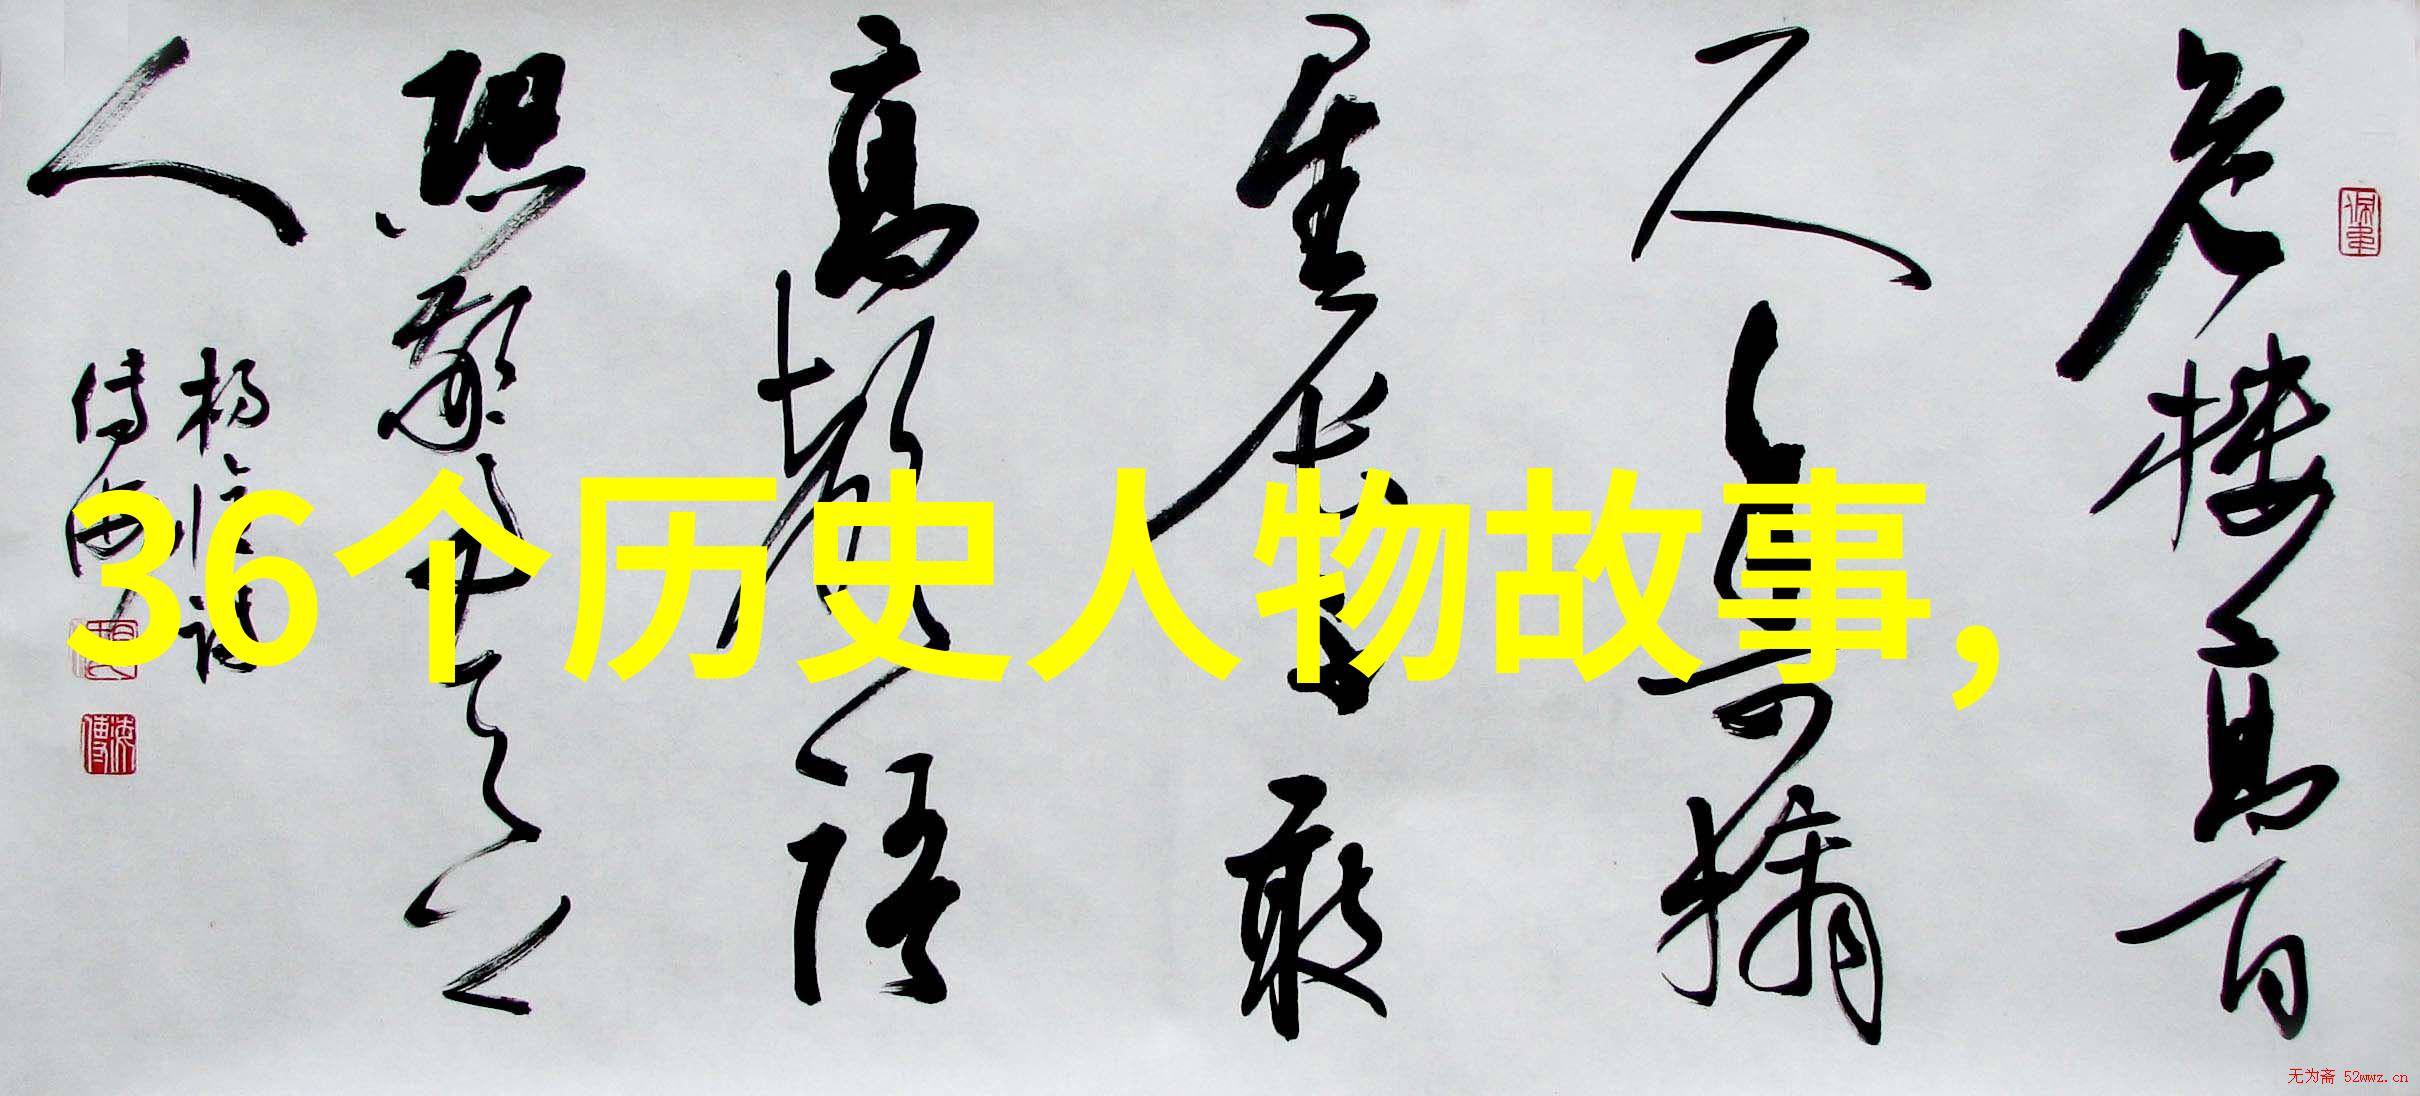 危楼高百
尺手可摘
星辰不敢
高聲語
恐驚天上
人
36个历史人物故事,
无为斋 52wwz.cn